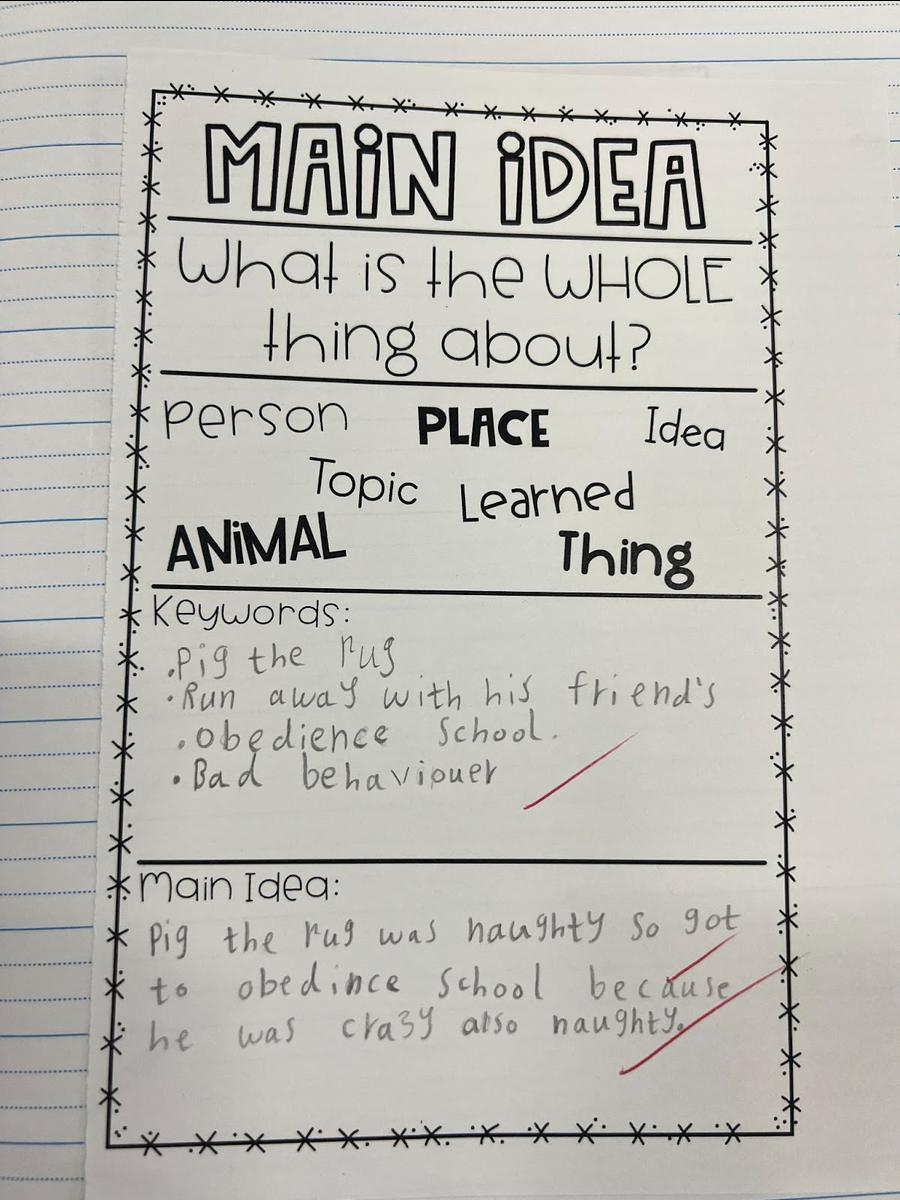 MAIN IDEA
What is the WHOLE
thing about?
Person PLACE Idea
Topic Learned
ANIMAL Thing
Keywords:
.Pig the rug
•Run away with his friend's
.obedience School.
•Bad behaviouer
Main Idea:
Pig the rug was naughty so got
to obedince School because
he was crazy also naughty.